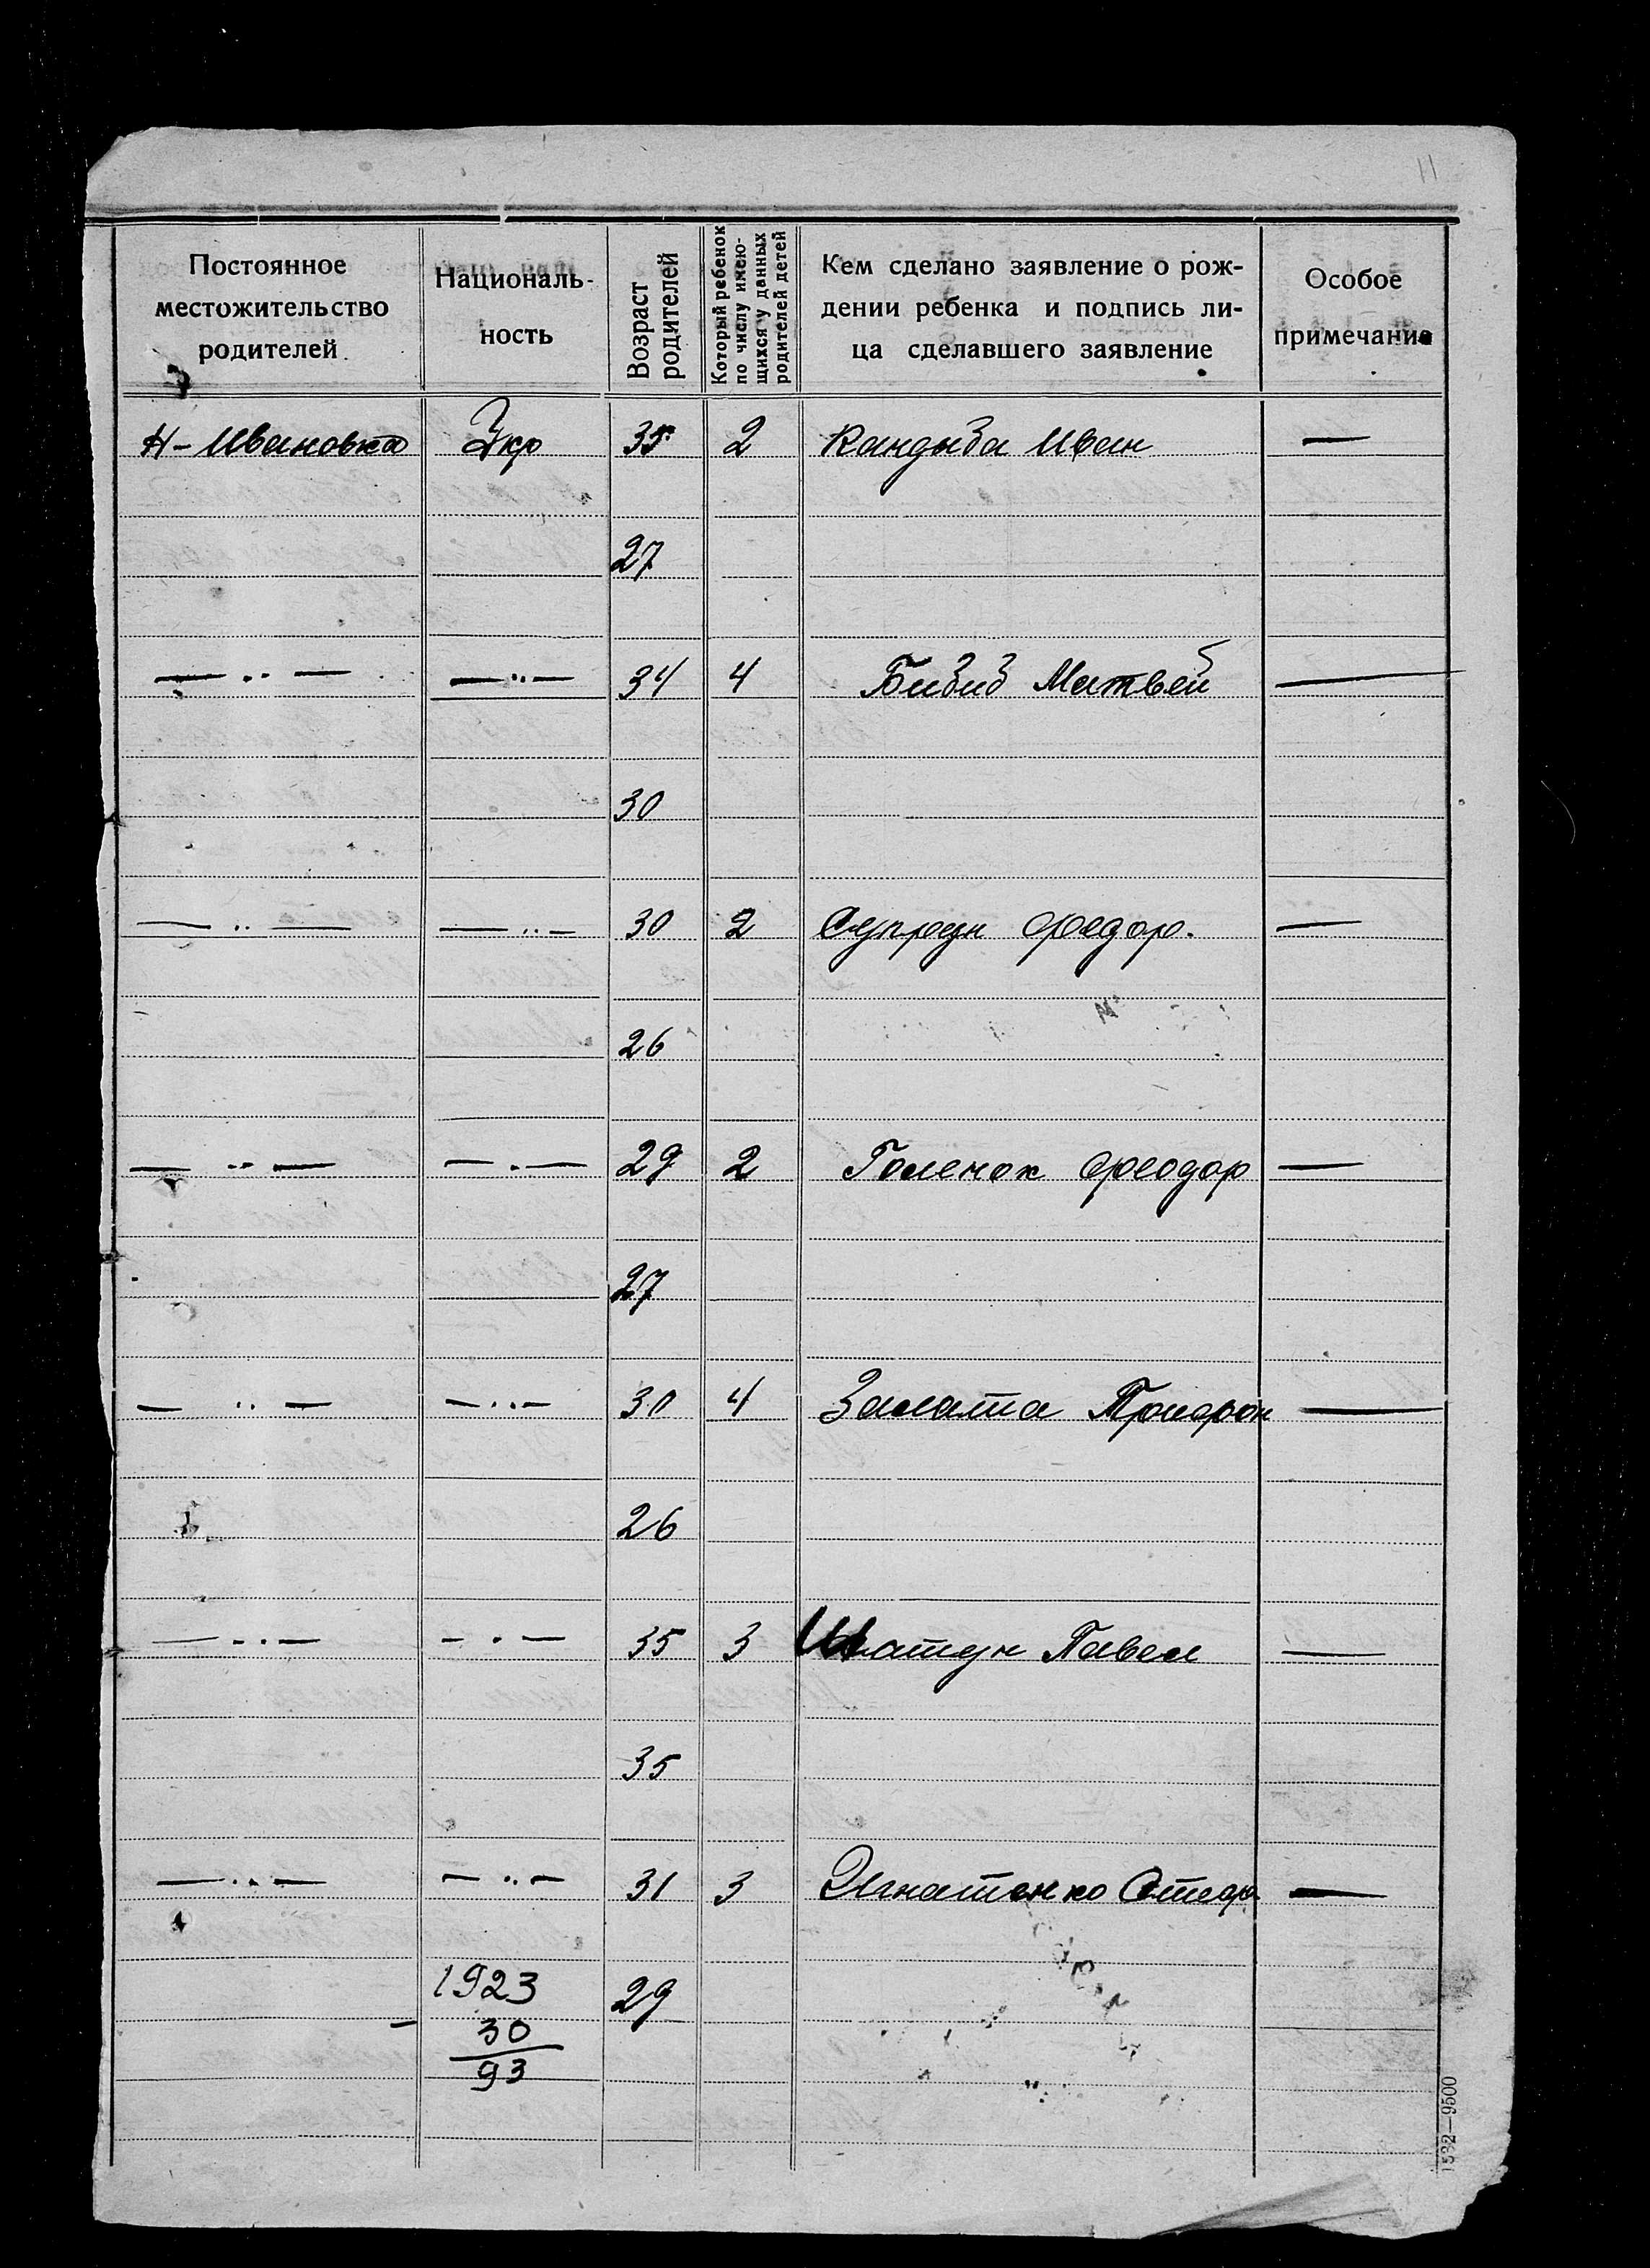 11
Постоянное
местожительство
родителей
Националь-
ность
Возраст
родителей
Который ребенок
по числу имею-
щихся у данных
родителей детей
Кем сделано заявление о рож-
дении ребенка и подпись ли-
ца сделавшего заявление
Особое
примечание
Н-Ивановка Укр 35 2 Кандыба Иван —
27
— .. — — .. — 34 4 Бибиб Матвей —
30
— .. — — .. — 30 2 Супрун Федор. —
26
— .. — — . — 29 2 Голенок Феодор —
27
— .. — — .. — 30 4 Залата Трифон —
26
— .. — — . — 35 3 Шатун Павел —
35
— .. — — .. — 31 3 Игнатенко Стеф. —
1923 29
– 30
93
1532—9500